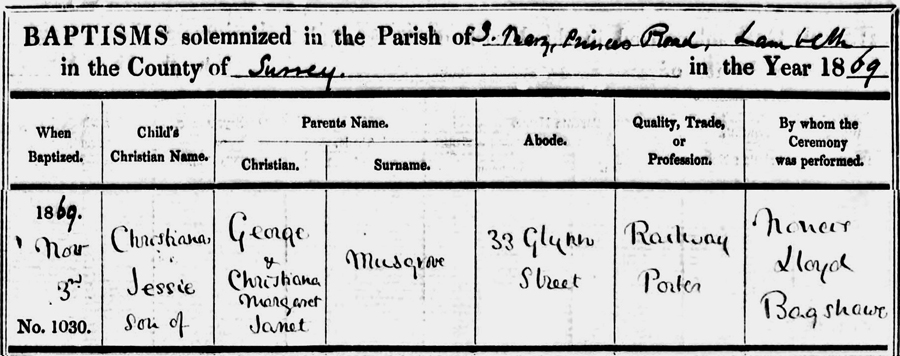 BAPTISMS solemnized in the Parish of S. Mary, Princes Road, Lambeth
in the County of Surrey. in the Year 1869
When
Baptized.
Child's
Christian Name.
Parents Name.
Christian.
Surname.
Abode.
Quality, Trade,
or
Profession.
By whom the
Ceremony
was performed.
1869.
Nov
3rd
No. 1030.
Christiana
Jessie
Son of
George
&
Christiana
Margaret
Janet
Musgrove
33 Glynn
Street
Railway
Porter
Lloyd
Bagshawe